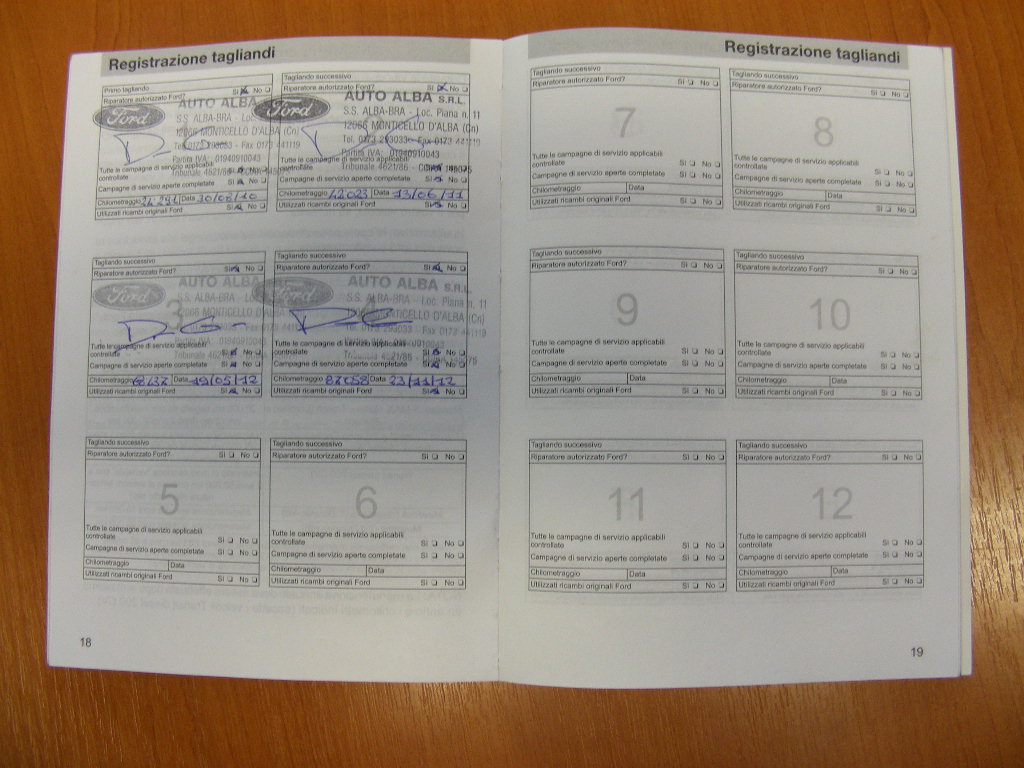 Registrazione tagliandi
Primo tagliando
Riparatore autorizzato Ford? Sì No
Ford
AUTO ALBA
S.S. ALBA-BRA - Loc.
12066 MONTICELLO D'ALBA (Cn)
Tel. 0173 293033
Partita IVA: 01940910043
Tribunale 4621/86
Tutte le campagne di servizio applicabili
controllate Sì No
Campagne di servizio aperte completate Sì No
Chilometraggio Data 30/08/10
Utilizzati ricambi originali Ford Sì No
Tagliando successivo
Riparatore autorizzato Ford? Sì No
Ford
AUTO ALBA S.R.L.
S.S. ALBA-BRA - Loc. Piana n. 11
12066 MONTICELLO D'ALBA (Cn)
Tel. 0173 293033 - Fax 0173 441119
Partita IVA: 01940910043
Tribunale 4621/86
Tutte le campagne di servizio applicabili
controllate Sì No
Campagne di servizio aperte completate Sì No
Chilometraggio 42023 Data 13/06/11
Utilizzati ricambi originali Ford Sì No
Tagliando successivo
Riparatore autorizzato Ford? Sì No
Ford
AUTO ALBA
3
S.S. ALBA-BRA
12066 MONTICELLO D'ALBA
Tutte le campagne di servizio applicabili
controllate Sì No
Campagne di servizio aperte completate Sì No
Chilometraggio Data 19/05/12
Utilizzati ricambi originali Ford Sì No
Tagliando successivo
Riparatore autorizzato Ford? Sì No
Ford
AUTO ALBA S.R.L.
S.S. ALBA-BRA - Loc. Piana n. 11
12066 MONTICELLO D'ALBA (Cn)
Tel. 0173 293033 - Fax 0173 441119
Tribunale 4621/86
Tutte le campagne di servizio applicabili
controllate Sì No
Campagne di servizio aperte completate Sì No
Chilometraggio 87058 Data 23/11/12
Utilizzati ricambi originali Ford Sì No
Tagliando successivo
Riparatore autorizzato Ford? Sì No
5
Tutte le campagne di servizio applicabili
controllate Sì No
Campagne di servizio aperte completate Sì No
Chilometraggio Data
Utilizzati ricambi originali Ford Sì No
Tagliando successivo
Riparatore autorizzato Ford? Sì No
6
Tutte le campagne di servizio applicabili
controllate Sì No
Campagne di servizio aperte completate Sì No
Chilometraggio Data
Utilizzati ricambi originali Ford Sì No
18
Registrazione tagliandi
Tagliando successivo
Riparatore autorizzato Ford? Sì No
7
Tutte le campagne di servizio applicabili
controllate Sì No
Campagne di servizio aperte completate Sì No
Chilometraggio Data
Utilizzati ricambi originali Ford Sì No
Tagliando successivo
Riparatore autorizzato Ford? Sì No
8
Tutte le campagne di servizio applicabili
controllate Sì No
Campagne di servizio aperte completate Sì No
Chilometraggio Data
Utilizzati ricambi originali Ford Sì No
Tagliando successivo
Riparatore autorizzato Ford? Sì No
9
Tutte le campagne di servizio applicabili
controllate Sì No
Campagne di servizio aperte completate Sì No
Chilometraggio Data
Utilizzati ricambi originali Ford Sì No
Tagliando successivo
Riparatore autorizzato Ford? Sì No
10
Tutte le campagne di servizio applicabili
controllate Sì No
Campagne di servizio aperte completate Sì No
Chilometraggio Data
Utilizzati ricambi originali Ford Sì No
Tagliando successivo
Riparatore autorizzato Ford? Sì No
11
Tutte le campagne di servizio applicabili
controllate Sì No
Campagne di servizio aperte completate Sì No
Chilometraggio Data
Utilizzati ricambi originali Ford Sì No
Tagliando successivo
Riparatore autorizzato Ford? Sì No
12
Tutte le campagne di servizio applicabili
controllate Sì No
Campagne di servizio aperte completate Sì No
Chilometraggio Data
Utilizzati ricambi originali Ford Sì No
19